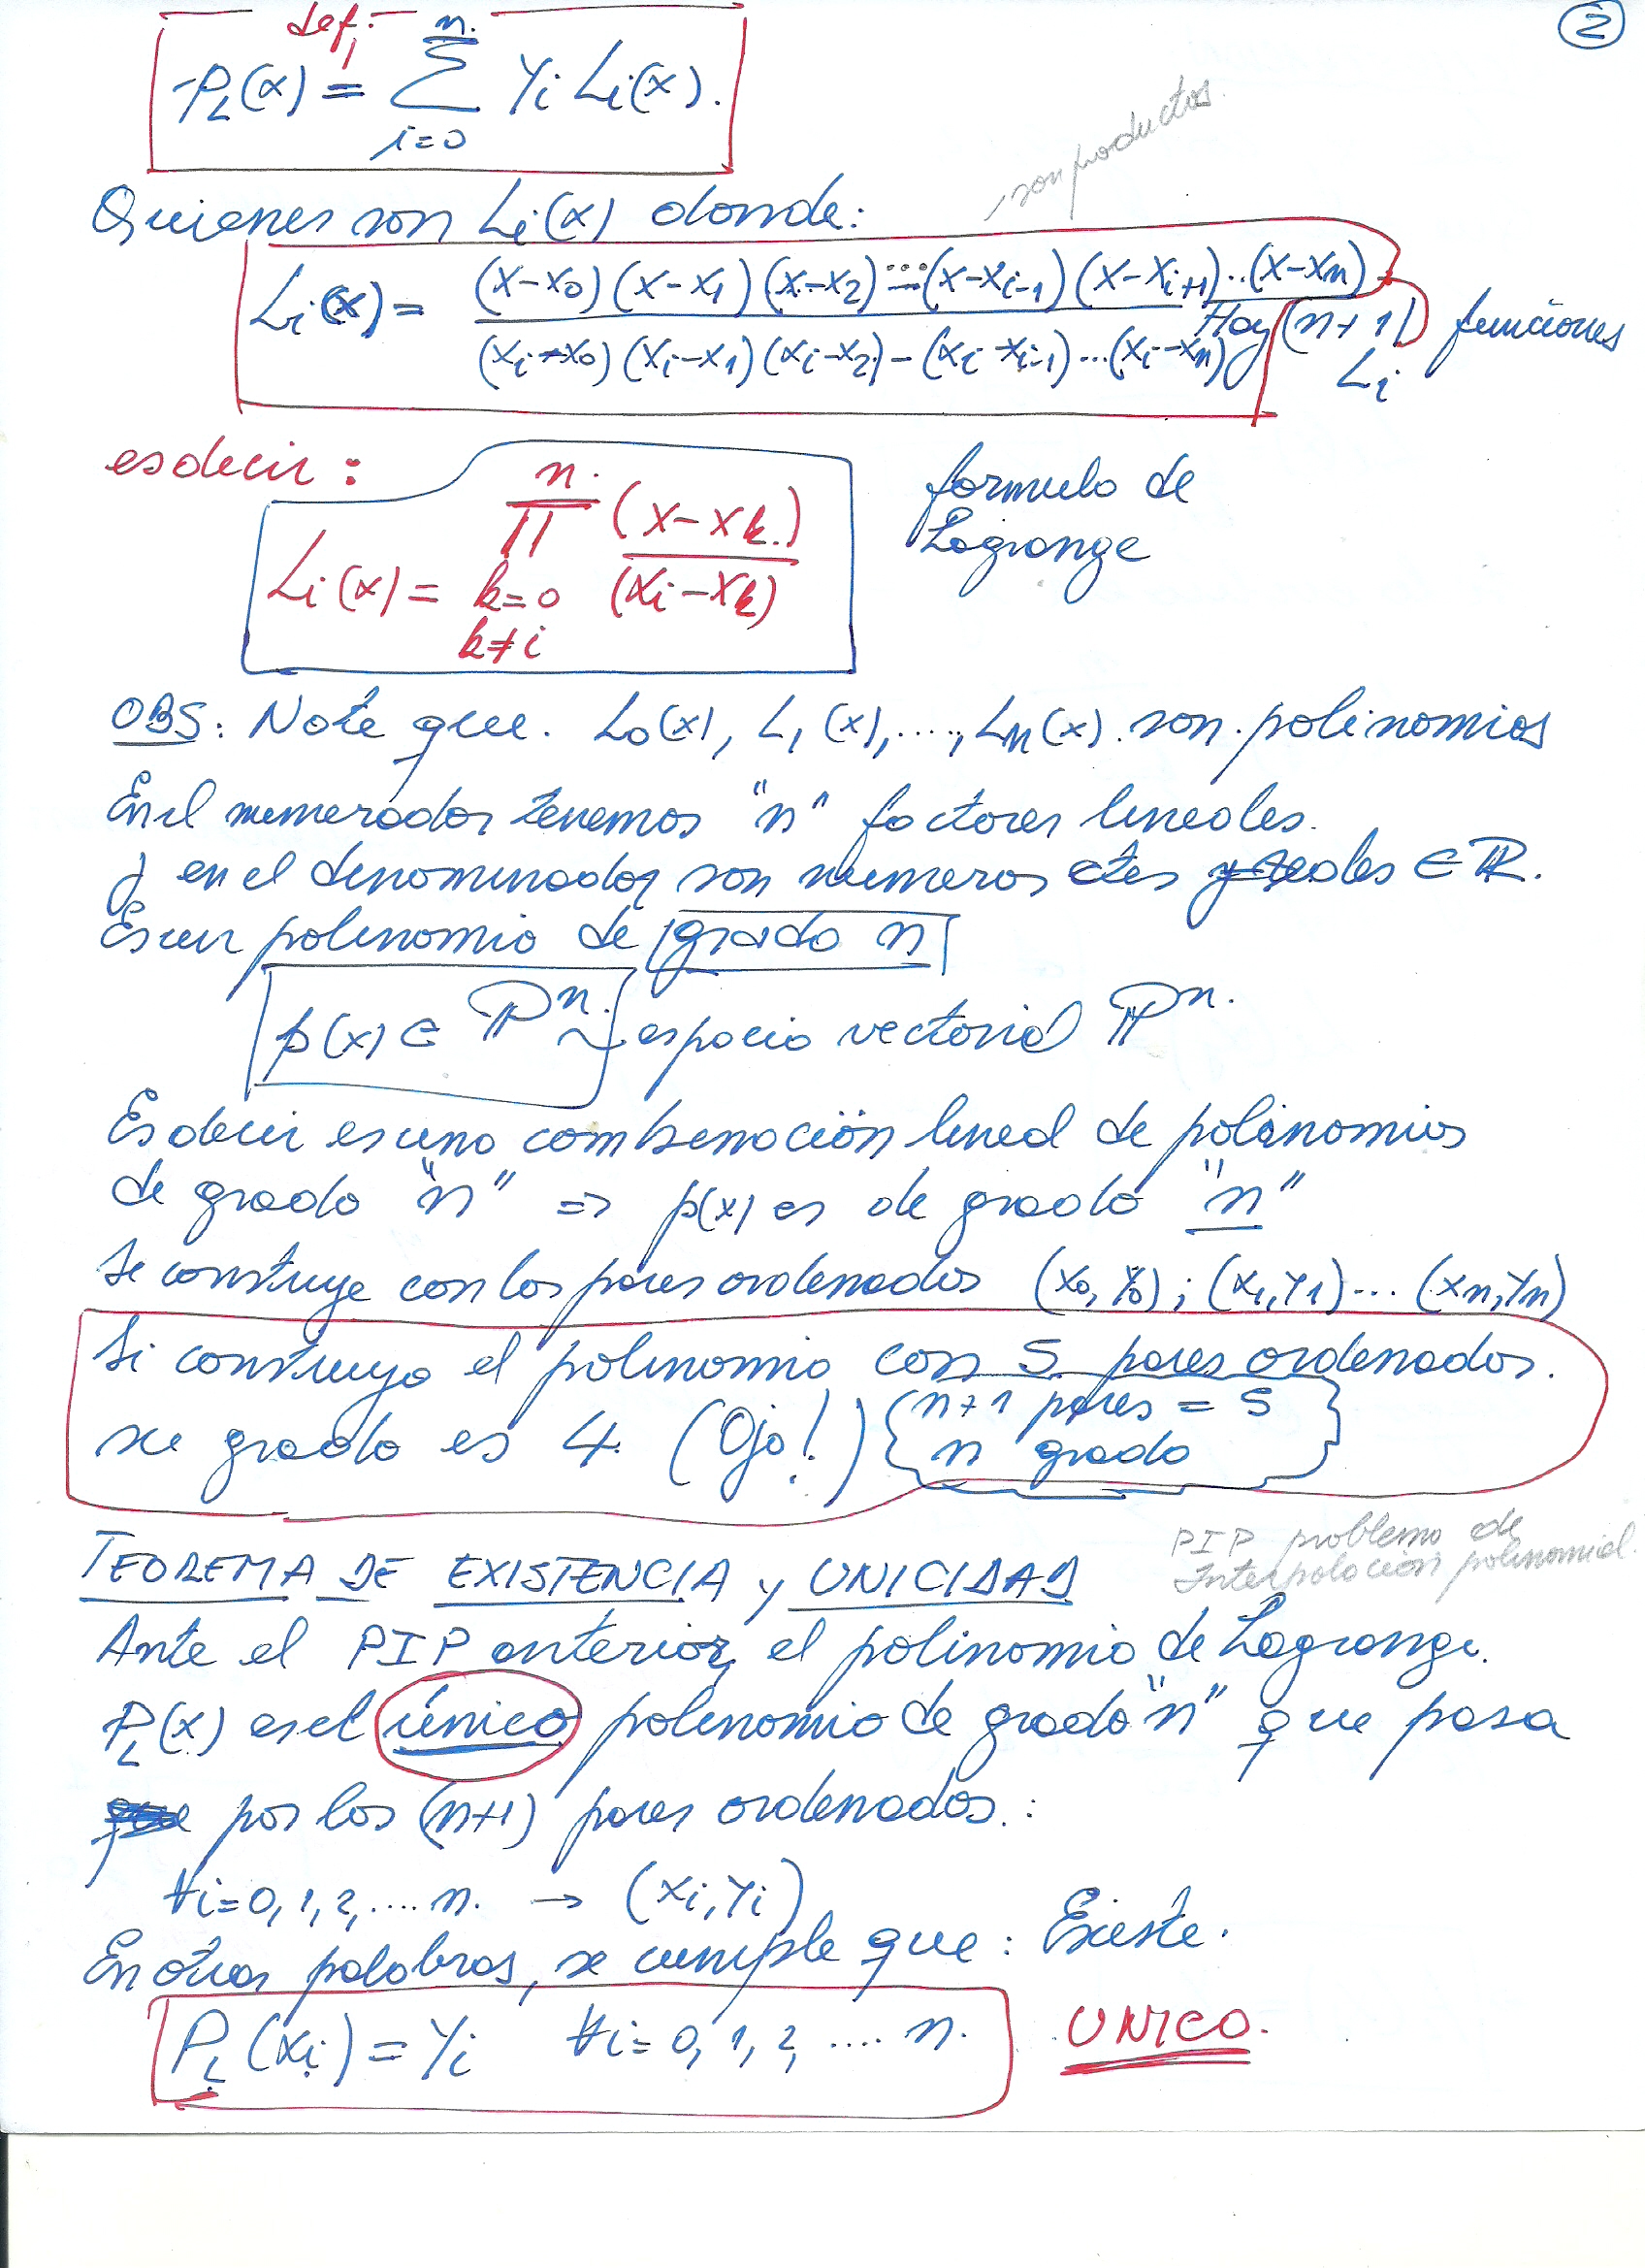 ②
def:
P_L(x) = \sum_{i=0}^{n} y_i L_i(x).
son productos.
Quienes son L_i(x) donde:
L_i(x) = \frac{(x-x_0)(x-x_1)(x-x_2)...(x-x_{i-1})(x-x_{i+1})..(x-x_n)}{(x_i-x_0)(x_i-x_1)(x_i-x_2)-(x_i-x_{i-1})...(x_i-x_n)}
Hay (n+1) funciones
L_i
es decir:
L_i(x) = \prod_{k=0, k≠i}^{n} \frac{(x-x_k)}{(x_i-x_k)}
formula de
Lagrange
OBS: Note que. L_0(x), L_1(x),...., L_n(x). son polinomios
En el numerador tenemos "n" factores lineales.
y en el denominador son numeros ctes y reales ∈ ℝ.
Es un polinomio de grado n
p(x) ∈ ℙ^n. ~ espacio vectorial ℙ^n.
Es decir es una combinación lineal de polinomios
de grado "n" => p(x) es de grado "n"
se construye con los pares ordenados (x_0,y_0); (x_1,y_1)... (x_n,y_n)
Si construyo el polinomio con 5 pares ordenados.
su grado es 4. (Ojo!) { n+1 pares = 5
n grado }
PIP problema de
Interpolación polinomial.
TEOREMA DE EXISTENCIA y UNICIDAD
Ante el PIP anterior, el polinomio de Lagrange.
P_L(x) es el único polinomio de grado "n" que pasa
por los (n+1) pares ordenados.:
∀i=0,1,2,....n. → (x_i,y_i)
En otras palabras, se cumple que: Existe.
P_L(x_i) = y_i ∀i=0,1,2,....n.
UNICO.